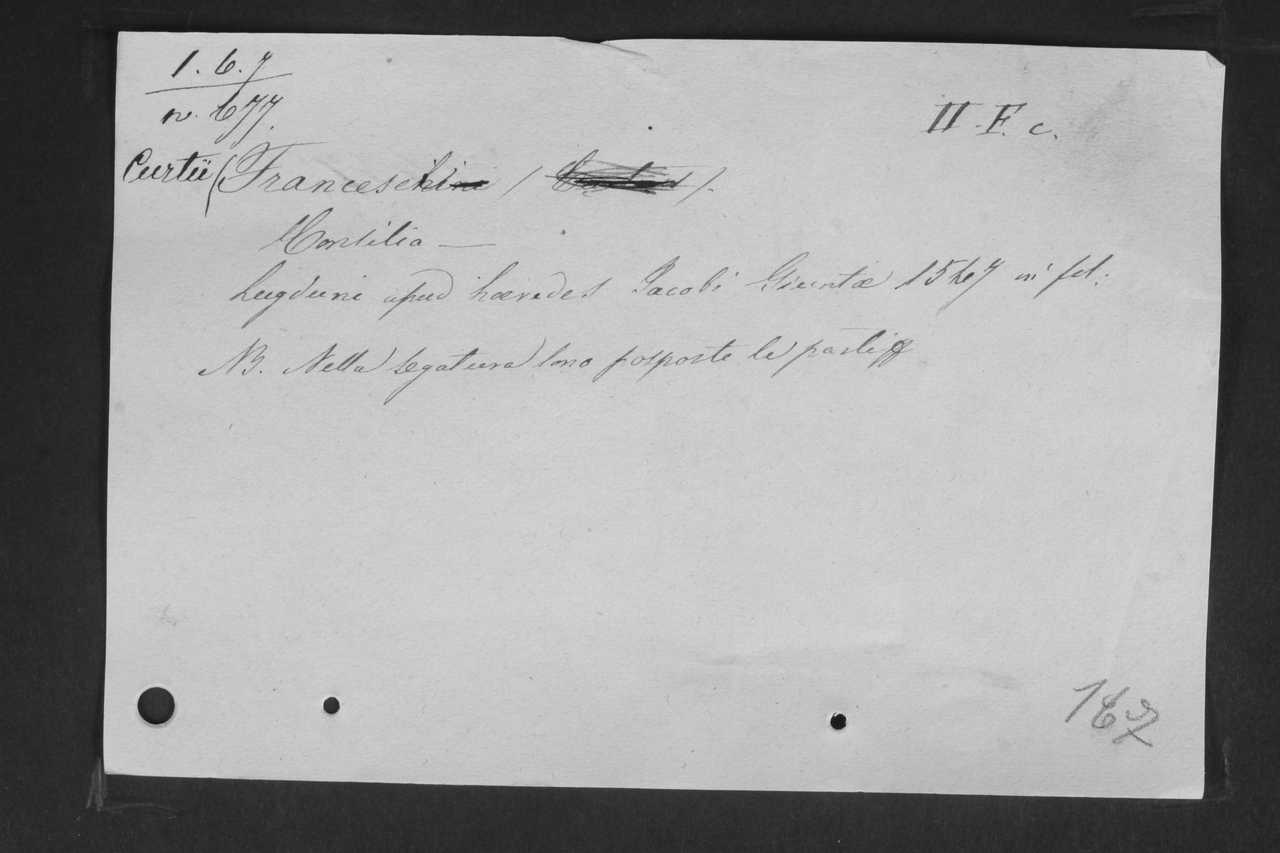 1. 6. 7
n. 677.
II. F. c.
Curtii (Francesci /
Consilia —
Lugduni apud hæredes Jacobi Giuntæ 1547 in fol:
NB. Nella legatura sono posposte le parti
167